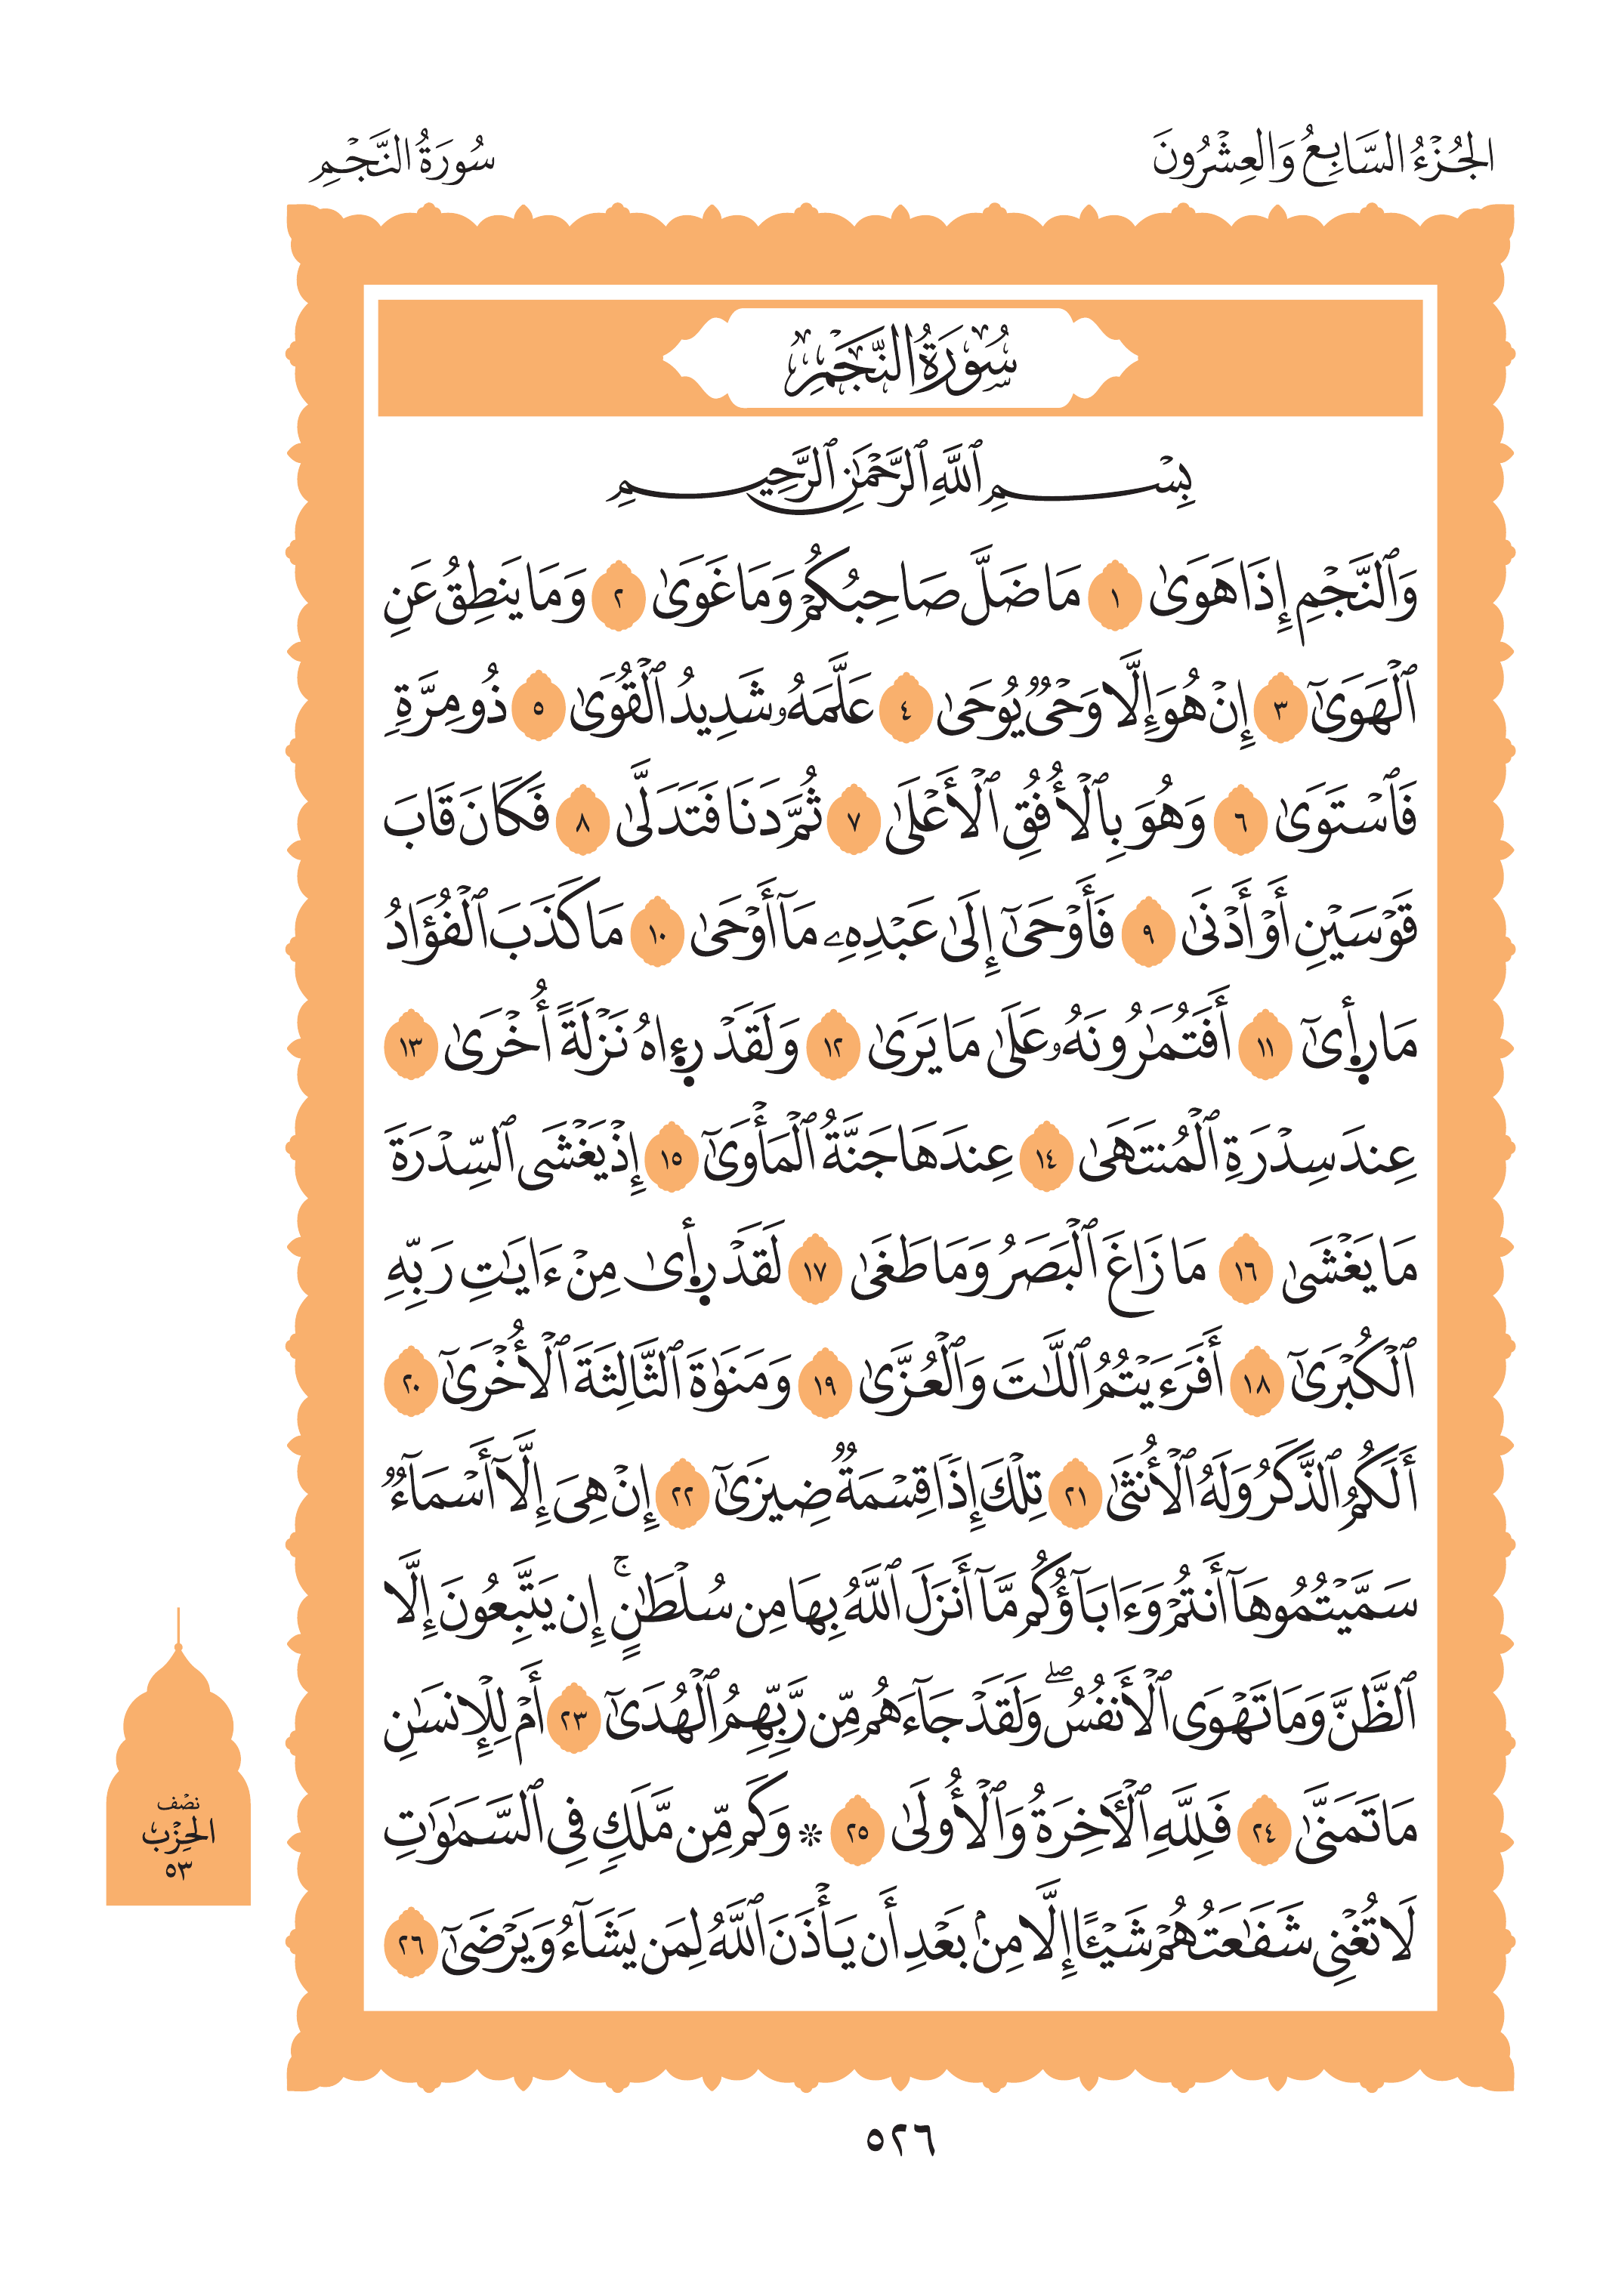 الجُزْءُ السَّابِعُ وَالعِشْرُونَ
سُورَةُ النَّجْمِ
سُورَةُ النَّجْمِ
بِسْمِ ٱللَّهِ ٱلرَّحْمَٰنِ ٱلرَّحِيمِ
وَٱلنَّجْمِ إِذَا هَوَىٰ ١ مَا ضَلَّ صَاحِبُكُمْ وَمَا غَوَىٰ ٢ وَمَا يَنطِقُ عَنِ
ٱلْهَوَىٰٓ ٣ إِنْ هُوَ إِلَّا وَحْىٌ يُوحَىٰ ٤ عَلَّمَهُۥ شَدِيدُ ٱلْقُوَىٰ ٥ ذُو مِرَّةٍ
فَٱسْتَوَىٰ ٦ وَهُوَ بِٱلْأُفُقِ ٱلْأَعْلَىٰ ٧ ثُمَّ دَنَا فَتَدَلَّىٰ ٨ فَكَانَ قَابَ
قَوْسَيْنِ أَوْ أَدْنَىٰ ٩ فَأَوْحَىٰٓ إِلَىٰ عَبْدِهِۦ مَآ أَوْحَىٰ ١٠ مَا كَذَبَ ٱلْفُؤَادُ
مَا ر۪أ۪ىٰٓ ١١ أَفَتُمَٰرُونَهُۥ عَلَىٰ مَا يَرَىٰ ١٢ وَلَقَدْ ر۪ء۪اهُ نَزْلَةً أُخْرَىٰ ١٣
عِندَ سِدْرَةِ ٱلْمُنتَهَىٰ ١٤ عِندَهَا جَنَّةُ ٱلْمَأْوَىٰٓ ١٥ إِذْ يَغْشَى ٱلسِّدْرَةَ
مَا يَغْشَىٰ ١٦ مَا زَاغَ ٱلْبَصَرُ وَمَا طَغَىٰ ١٧ لَقَدْ ر۪أ۪ىٰ مِنْ ءَايَٰتِ رَبِّهِ
ٱلْكُبْرَىٰٓ ١٨ أَفَرَءَيْتُمُ ٱللَّٰتَ وَٱلْعُزَّىٰ ١٩ وَمَنَوٰةَ ٱلثَّالِثَةَ ٱلْأُخْرَىٰٓ ٢٠
أَلَكُمُ ٱلذَّكَرُ وَلَهُ ٱلْأُنثَىٰ ٢١ تِلْكَ إِذًا قِسْمَةٌ ضِيزَىٰٓ ٢٢ إِنْ هِىَ إِلَّآ أَسْمَآءٌ
سَمَّيْتُمُوهَآ أَنتُمْ وَءَابَآؤُكُم مَّآ أَنزَلَ ٱللَّهُ بِهَا مِن سُلْطَٰنٍ ۚ إِن يَتَّبِعُونَ إِلَّا
ٱلظَّنَّ وَمَا تَهْوَى ٱلْأَنفُسُ ۖ وَلَقَدْ جَآءَهُم مِّن رَّبِّهِمُ ٱلْهُدَىٰٓ ٢٣ أَمْ لِلْإِنسَٰنِ
مَا تَمَنَّىٰ ٢٤ فَلِلَّهِ ٱلْأَخِرَةُ وَٱلْأُولَىٰ ٢٥ ۞ وَكَم مِّن مَّلَكٍ فِى ٱلسَّمَٰوَٰتِ
لَا تُغْنِى شَفَٰعَتُهُمْ شَيْـًٔا إِلَّا مِنۢ بَعْدِ أَن يَأْذَنَ ٱللَّهُ لِمَن يَشَآءُ وَيَرْضَىٰٓ ٢٦
نصْف
الحِزْب
٥٣
٥٢٦